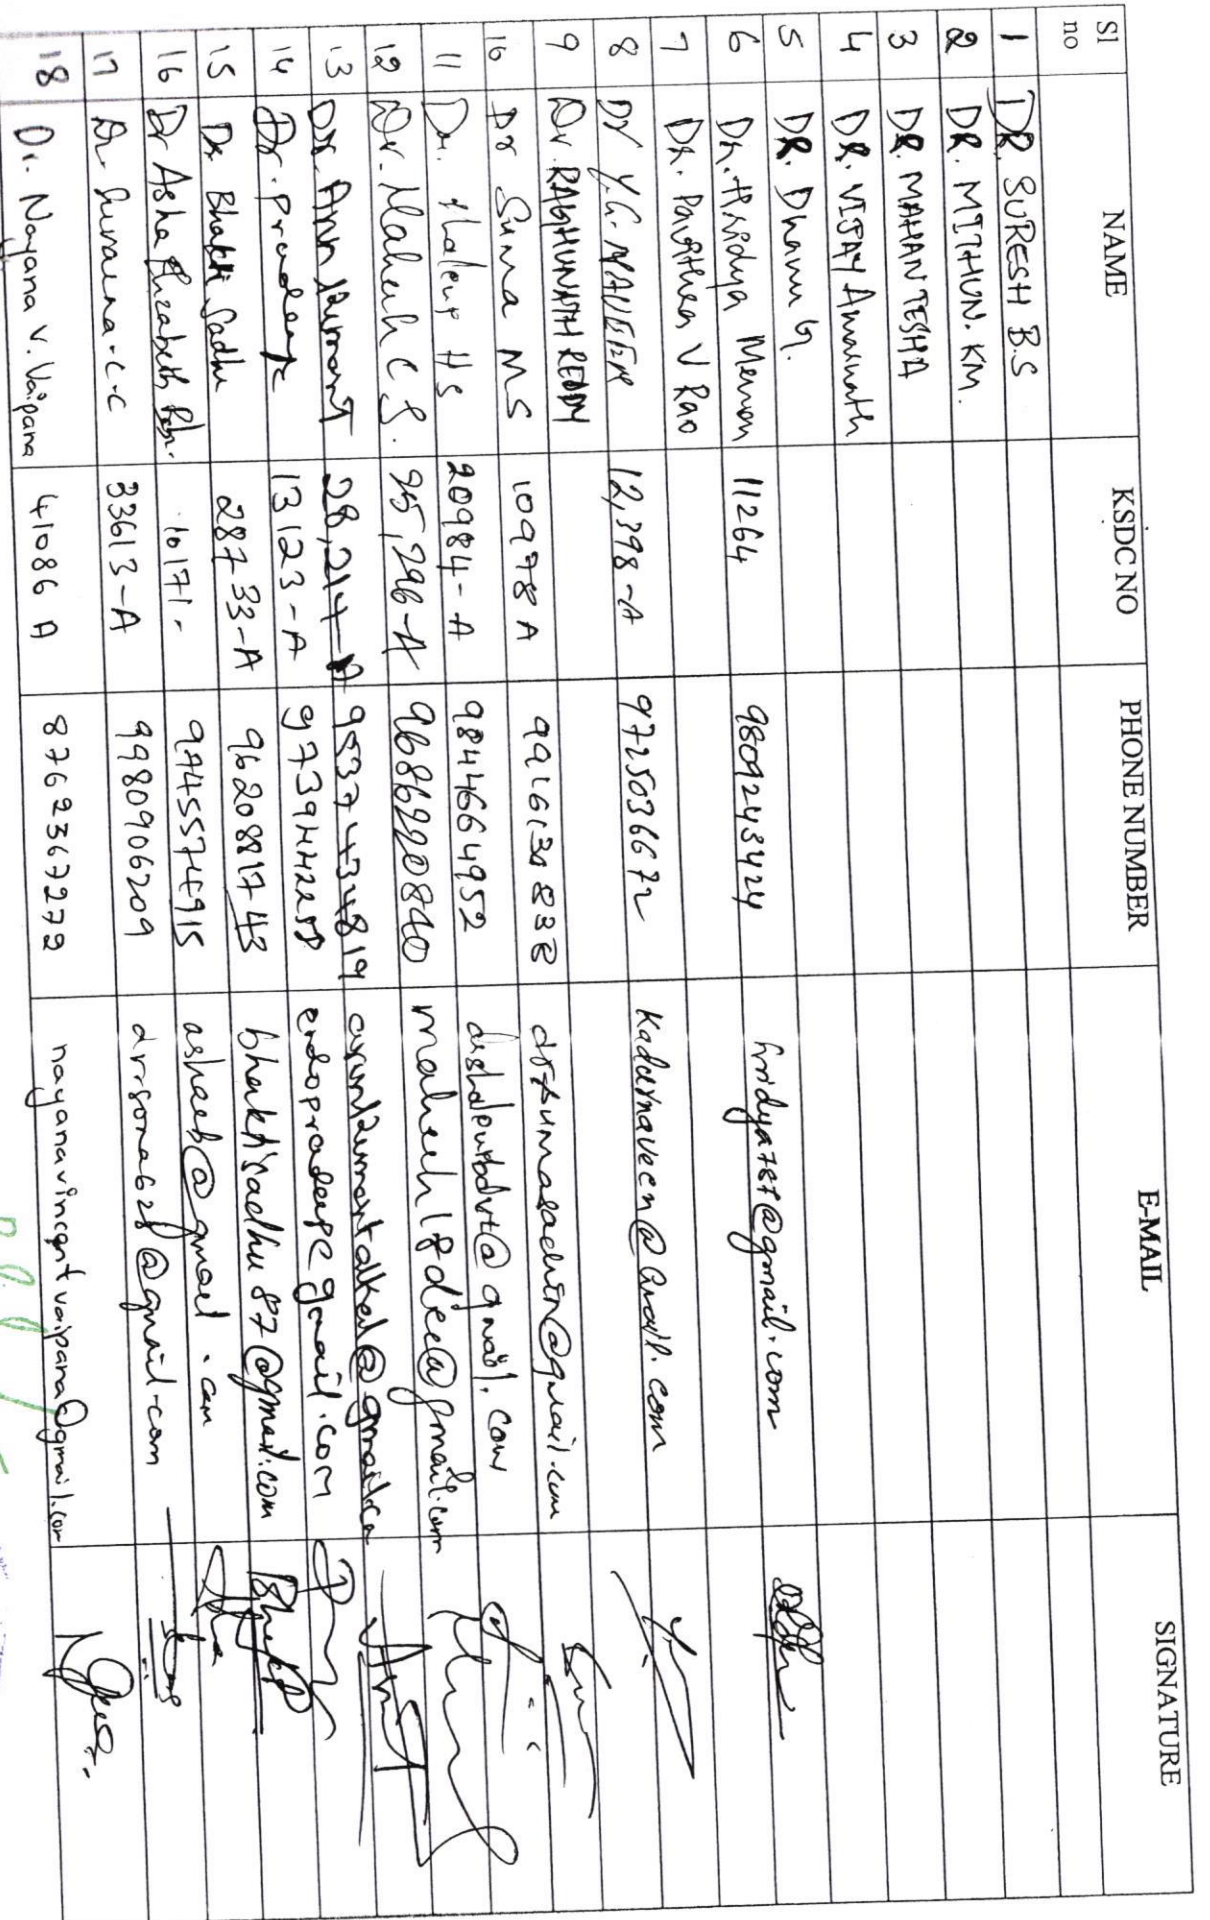 Sl no NAME KSDC NO PHONE NUMBER E-MAIL SIGNATURE
1 DR. SURESH B.S
2 DR. MITHUN. KM.
3 DR. MAHANTESHA
4 DR. VIJAY Amarnath
5 DR. Dhanu G.
6 Dr. Hridya Menon 11264 9809243424 hridya787@gmail.com
7 Dr. Pavithra V Rao
8 Dr Y.G. NAVEEN 12,398-A 9725036672 kadurnaveen@gmail.com
9 Dr. RAGHUNATH REDDY
10 Dr Suma MS 10978 A 9916130838 drsumasachin@gmail.com
11 Dr. HS 20984-A 9844664952 @gmail.com
12 Dr. Mahesh C S. 25,296-A 9686220840 mahesh18dec@gmail.com
13 Dr. 28,214-A 9537434819
14 Dr. Pradeep 13123-A endopradeep@gmail.com
15 Dr Bhakti Sadhu 28733-A 9620881743 bhaktisadhu87@gmail.com Bhakti
16 Dr Asha Elizabeth 10171- 9945574915 ashaeb@gmail.com
17 Dr. Suvarna.C.C 33613-A 9980906209 drrsona628@gmail.com
18 Dr. Nayana V. Vaipana 41086 A 8762367272 nayanavincentvaipana@gmail.com